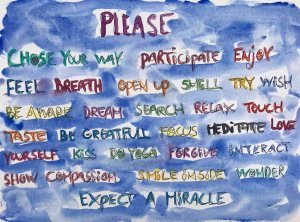 PLEASE
CHOSE YOUR WAY PARTICIPATE ENJOY
FEEL BREATH OPEN UP SMELL TRY WISH
BE AWARE DREAM SEARCH RELAX TOUCH
TASTE BE GREATFUL FOCUS MEDITATE LOVE
YOURSELF KISS DO YOGA FORGIVE INTERACT
SHOW COMPASSION SMILE INSIDE WONDER
EXPECT A MIRACLE